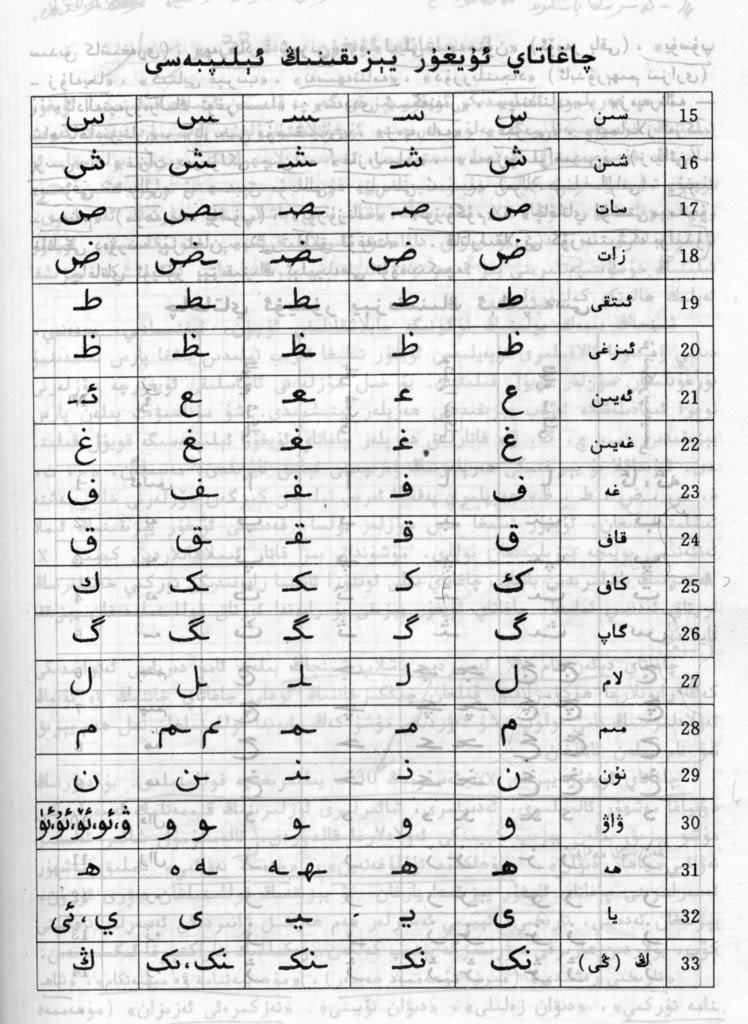 چاغاتاي ئۇيغۇر يېزىقىنىڭ ئېلىپبەسى
15 سىن س سـ ـسـ ـس س
16 شىن ش شـ ـشـ ـش ش
17 سات ص صـ ـصـ ـص ص
18 زات ض ض ـضـ ـض ض
19 ئىتقى ط ط ـط ـط ط
20 ئىزغى ظ ظ ـظ ـظ ظ
21 ئەيىن ع عـ ـعـ ـع ئـ
22 غەيىن غ غـ ـغـ ـغ غ
23 فە ف فـ ـفـ ـف ف
24 قاف ق قـ ـقـ ـق ق
25 كاف ك كـ ـكـ ـك ك
26 گاپ گ گـ ـگـ ـگ گ
27 لام ل لـ ـلـ ـل ل
28 مىم م مـ ـمـ م ـم م
29 نۇن ن نـ ـنـ ـن ن
30 ۋاۋ و و ـو و ـو ۋ،ئو،ئۆ،ئۇ،ئۈ
31 ھە ھـ ھـ ـهـ ـه ه ھـ
32 يا ى يـ ـيـ ى ي،ئى
33 ڭ (ڭى) نک نکـ ـنکـ ـنک،نک ڭ